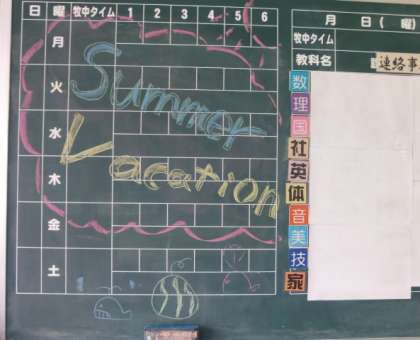 日 曜 牧中タイム 1 2 3 4 5 6
月
火
水
木
金
土
Summer
Vacation
月 日( 曜)
牧中タイム
教科名
連絡事
数
理
国
社
英
体
音
美
技
家